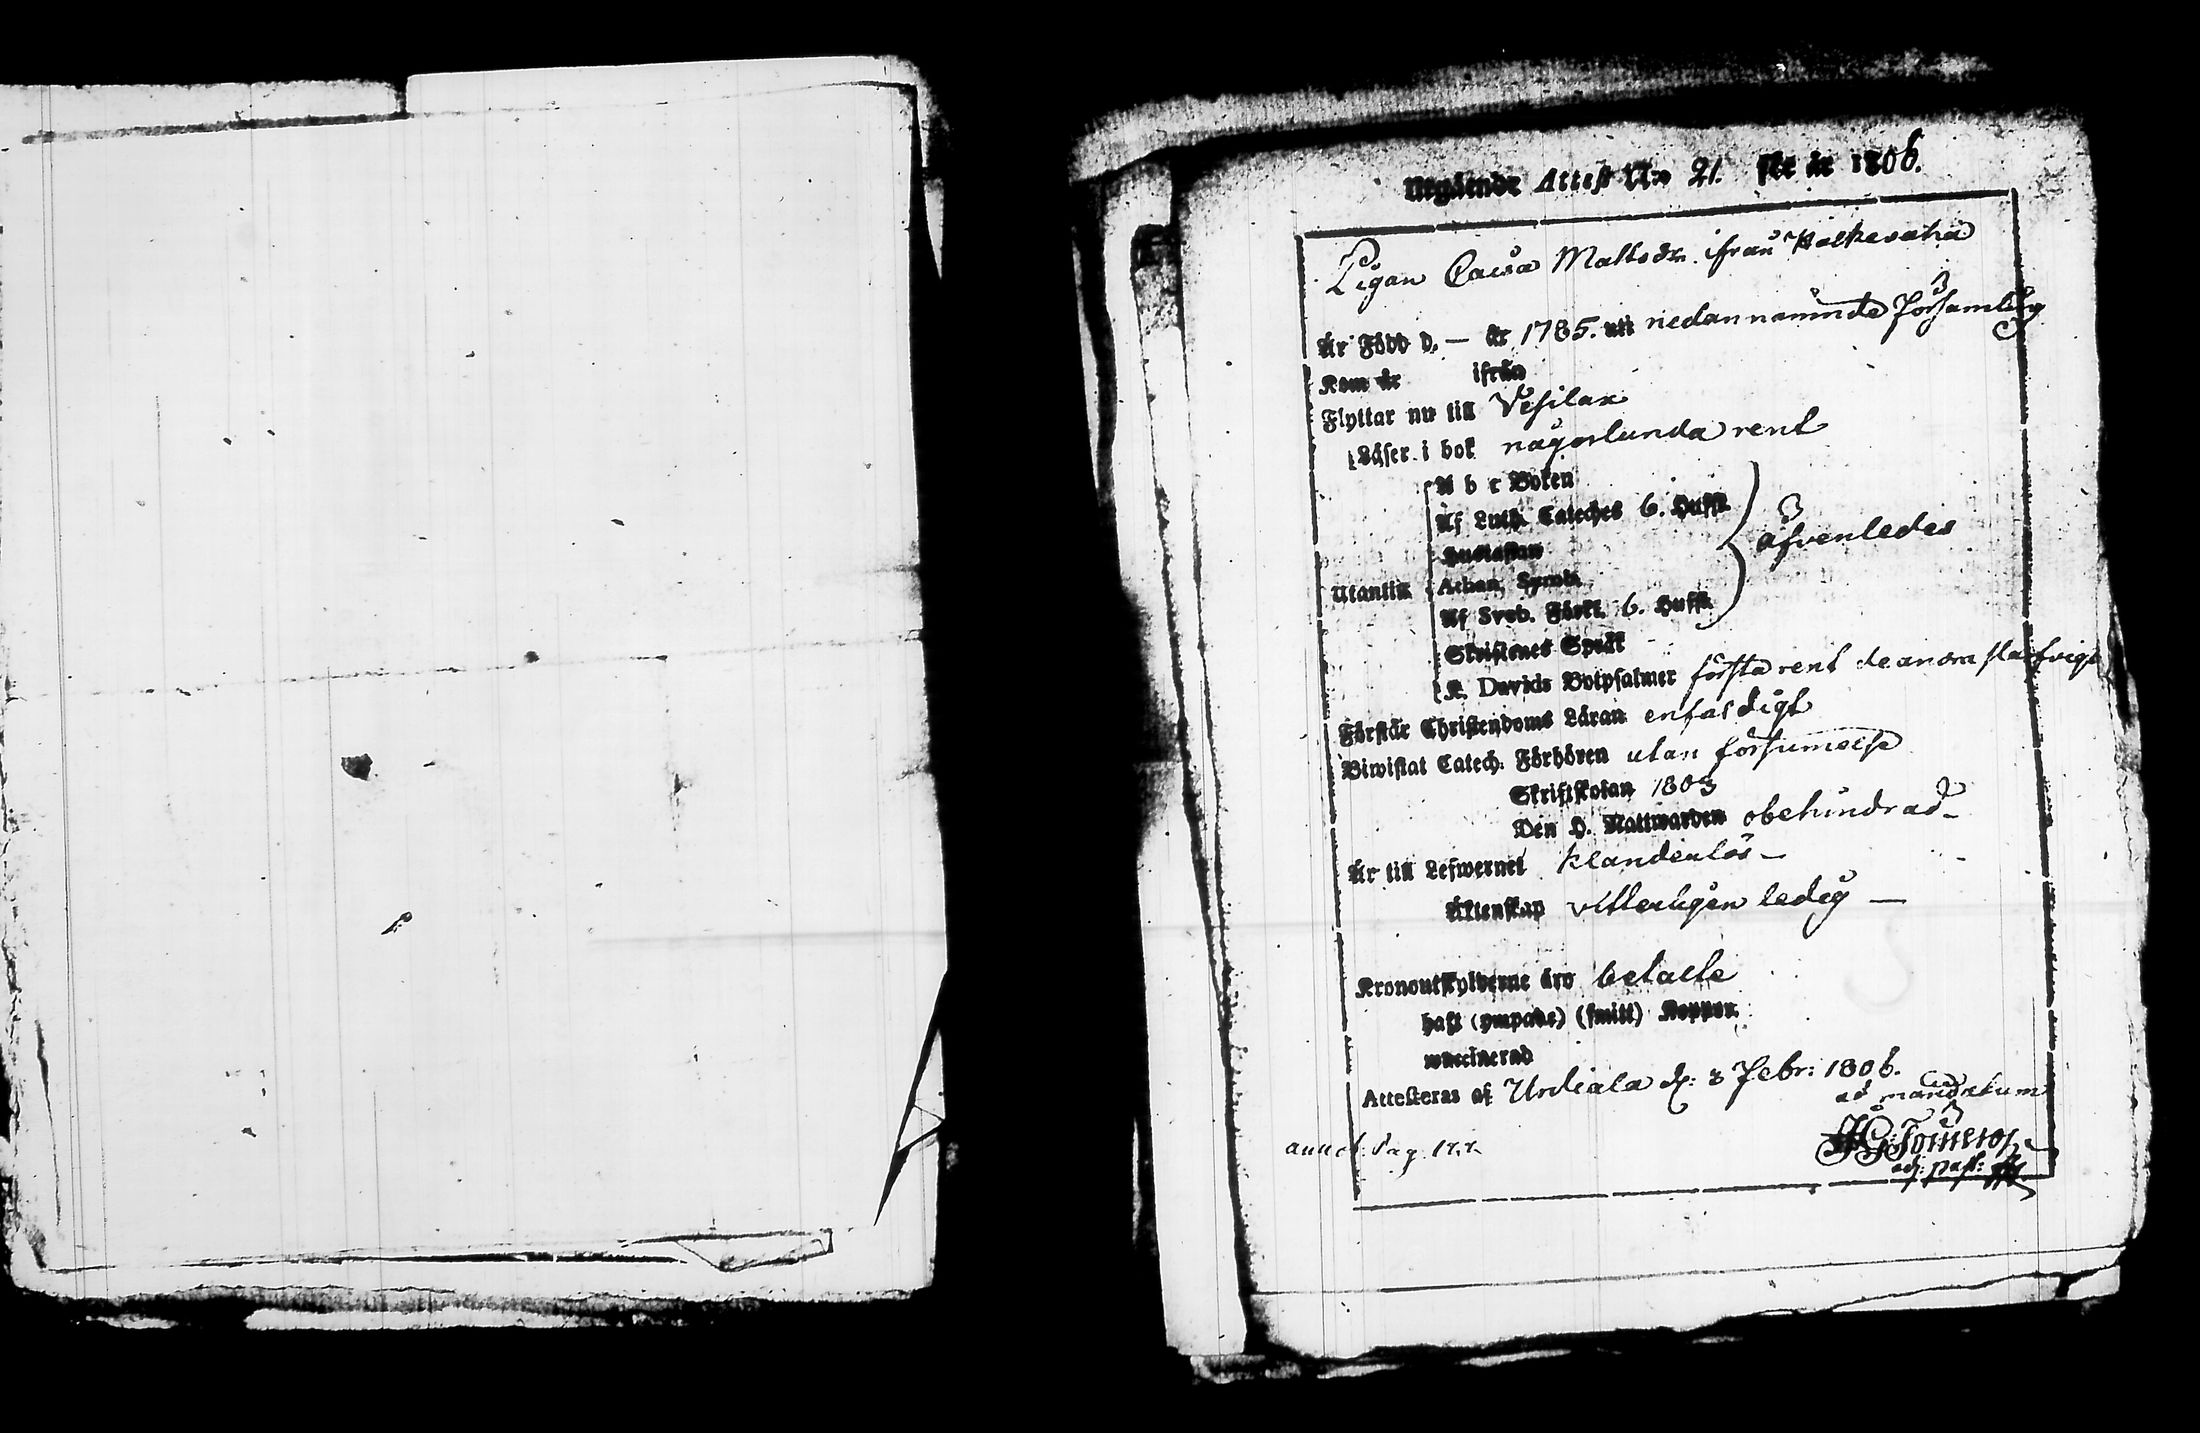 Utgående Attest N:o 21. för år 1806.
Pigan Caisa Mattsdr. ifrån Halkevaha
Är Född d. — år 1785. uti nedannämnde församling
Kom år ifrån
Flyttar nu till Vesilax
Läser i bok någorlunda rent
A b c Boken
Af Luth. Cateches 6. Hufst.
Hustaflan
Utantill Athan. Symb. äfvenledes
Af Sveb. Förkl. 6. Hufst.
Skriftenes Språk
K. Davids Botpsalmer första rent de andra stafvigt
Förstår Christendoms Läran enfaldigt
Biwistat Catech. Förhören utan försummelse
Skriftskolan 1803
Den H. Nattwarden obehindrad –
Är till Lefwernet klanderlös –
Äktenskap vitterligen ledig —
Kronoutskylderne äro betalte
haft (ympade) (smitt) Koppor.
waccinerad
Attesteras af Urdiala d: 3 Febr: 1806.
ad mandatum
annot: Pag.
adj: past: